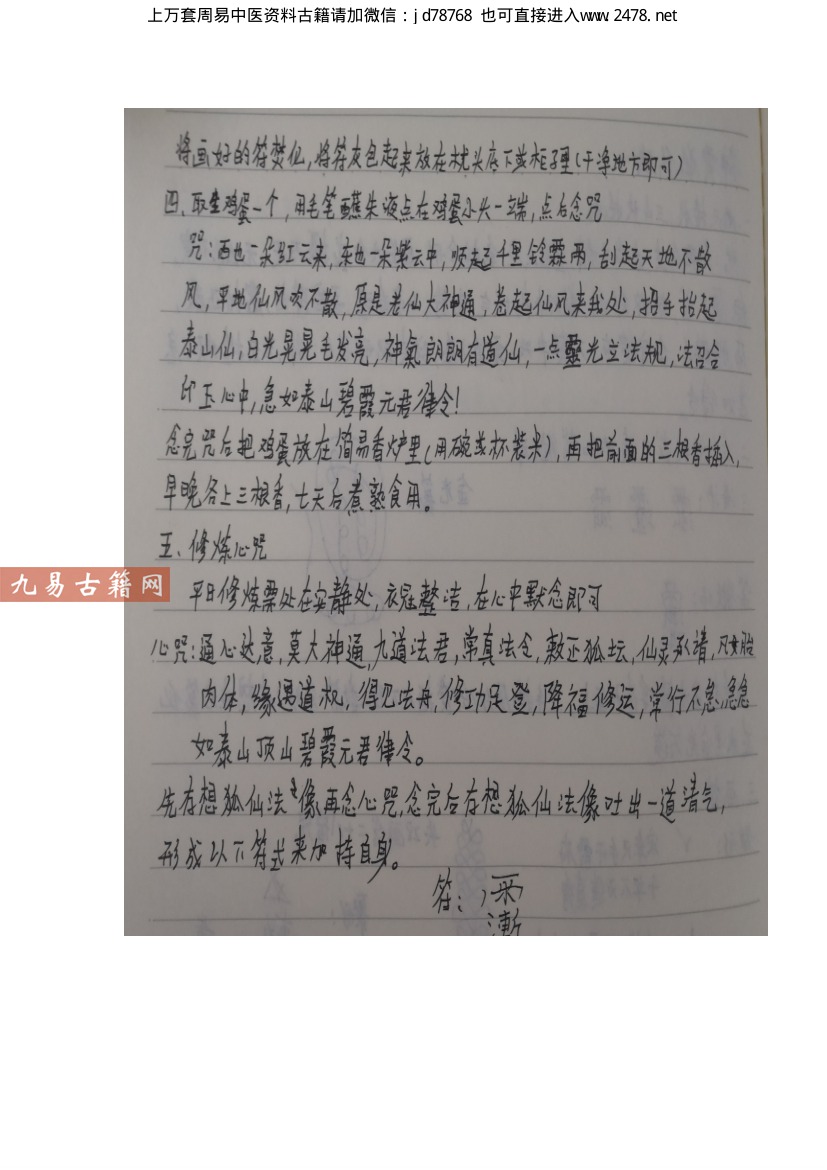 上万套周易中医资料古籍请加微信：jd78768 也可直接进入www.2478.net
将画好的符焚化,将符灰包起来放在枕头底下或柜子里(干净地方即可)
四、取生鸡蛋一个,用毛笔蘸朱液点在鸡蛋小头一端,点后念咒
咒:西也一朵红云来,东也一朵紫云中,顺起千里铃霖雨,刮起天地不散
风,平地仙风吹不散,原是老仙大神通,卷起仙风来我处,招手抬起
泰山仙,白光晃晃毛发亮,神氣朗朗有道仙,一点靈光立法规,法召合
印玉心中,急如泰山碧霞元君律令!
念完咒后把鸡蛋放在简易香炉里(用碗或杯装米),再把前面的三根香插入,
早晚各上三根香,七天后煮熟食用。
九易古籍网
五、修炼心咒
平日修炼需处在安静处,衣冠整洁,在心中默念即可
心咒:通心达意,莫大神通,九道法君,常真法令,敕正狐坛,仙灵承请,凡女胎
肉体,缘遇道机,得见法舟,修功足登,降福修运,常行不怠,急急
如泰山顶山碧霞元君律令。
先存想狐仙法像再念心咒,念完后存想狐仙法像吐出一道清气,
形成以下符式来加持自身。
符: